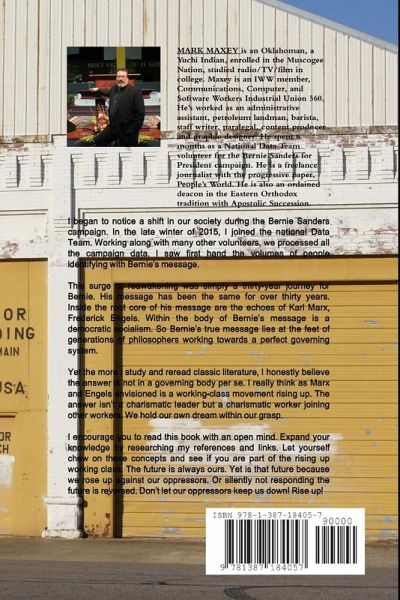 MARK MAXEY is an Oklahoman, a
Yuchi Indian, enrolled in the Muscogee
Nation, studied radio/TV/film in
college. Maxey is an IWW member,
Communications, Computer, and
Software Workers Industrial Union 560,
He's worked as an administrative
assistant, petroleum landman, barista,
staff writer, paralegal, content producer
and graphic designer. He spent 6
months as a National Data Team
volunteer for the Bernie Sanders for
President campaign. He is a freelance
journalist with the progressive paper,
People's World. He is also an ordained
deacon in the Eastern Orthodox
tradition with Apostolic Succession.
I began to notice a shift in our society during the Bernie Sanders
campaign. In the late winter of 2015, I joined the national Data
Team. Working along with many other volunteers, we processed all
the campaign data. I saw first hand the volumes of people
identifying with Bernie's message.
This surge of reawakening was simply a thirty-year journey for
Bernie. His message has been the same for over thirty years.
Inside the root core of his message are the echoes of Karl Marx,
Frederick Engels. Within the body of Bernie's message is a
democratic socialism. So Bernie's true message lies at the feet of
generations of philosophers working towards a perfect governing
system.
Yet the more I study and reread classic literature, I honestly believe
the answer is not in a governing body per se. I really think as Marx
and Engels envisioned is a working-class movement rising up. The
answer isn't a charismatic leader but a charismatic worker joining
other workers. We hold our own dream within our grasp.
I encourage you to read this book with an open mind. Expand your
knowledge by researching my references and links. Let yourself
chew on these concepts and see if you are part of the rising up
working class. The future is always ours. Yet is that future because
we rose up against our oppressors. Or silently not responding the
future is reversed. Don't let our oppressors keep us down! Rise up!
OR
DING
MAIN
USA
OR
CH
ISBN 978-1-387-18405-7
90000
9 781387 184057